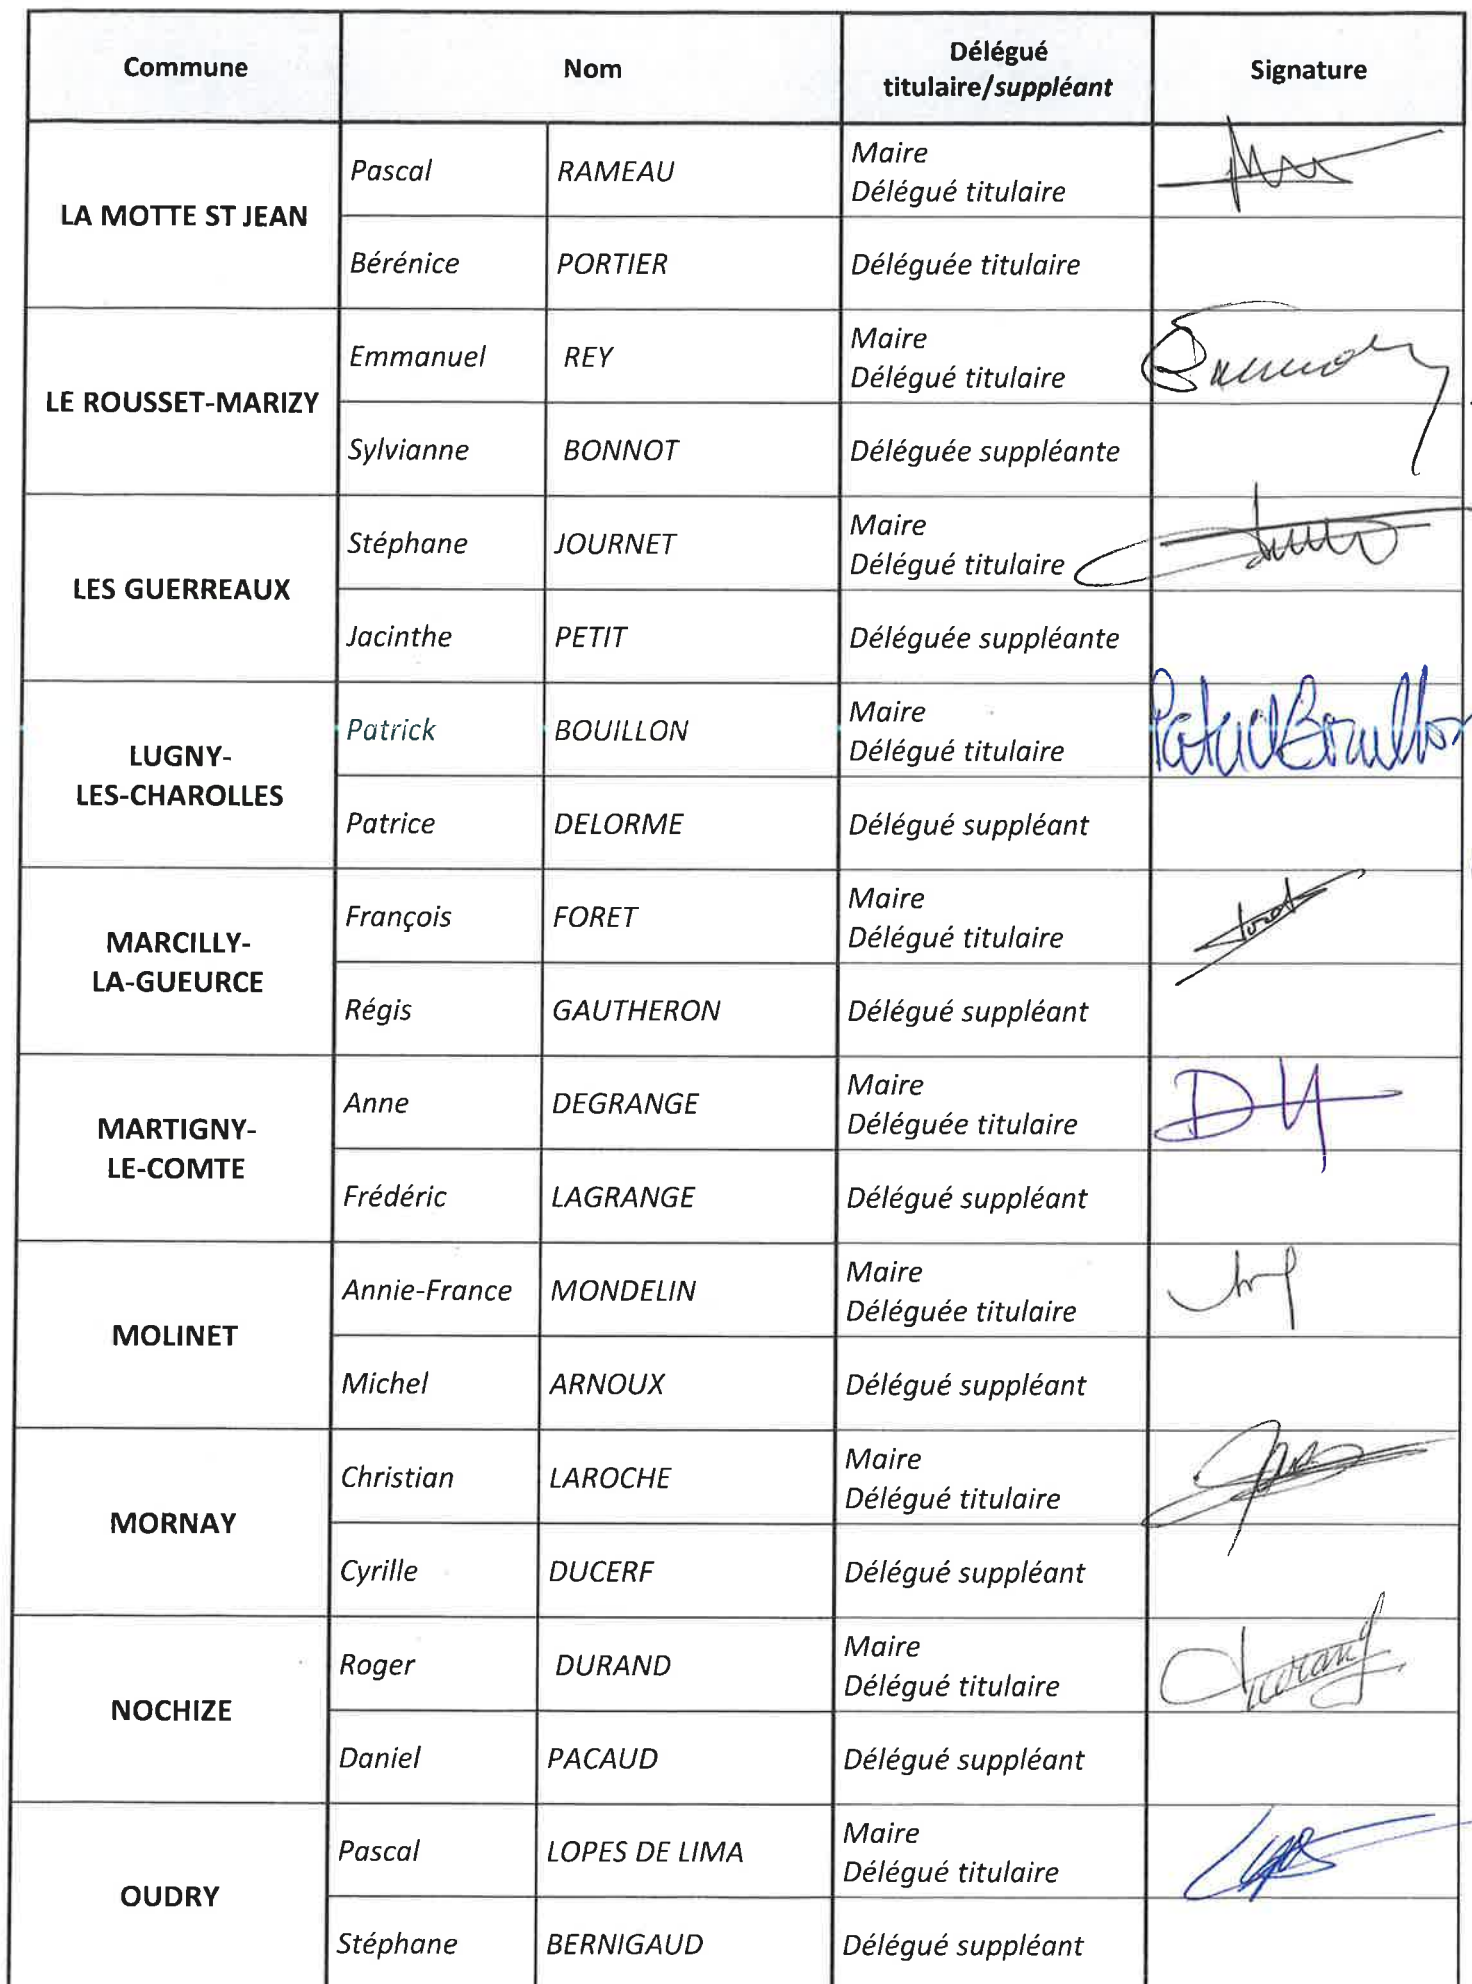 Commune
Nom
Délégué
titulaire/suppléant
Signature
LA MOTTE ST JEAN
Pascal
RAMEAU
Maire
Délégué titulaire
Bérénice
PORTIER
Déléguée titulaire
LE ROUSSET-MARIZY
Emmanuel
REY
Maire
Délégué titulaire
Sylvianne
BONNOT
Déléguée suppléante
LES GUERREAUX
Stéphane
JOURNET
Maire
Délégué titulaire
Jacinthe
PETIT
Déléguée suppléante
LUGNY-
LES-CHAROLLES
Patrick
BOUILLON
Maire
Délégué titulaire
Patrick Bouillon
Patrice
DELORME
Délégué suppléant
MARCILLY-
LA-GUEURCE
François
FORET
Maire
Délégué titulaire
Régis
GAUTHERON
Délégué suppléant
MARTIGNY-
LE-COMTE
Anne
DEGRANGE
Maire
Déléguée titulaire
Frédéric
LAGRANGE
Délégué suppléant
MOLINET
Annie-France
MONDELIN
Maire
Déléguée titulaire
Michel
ARNOUX
Délégué suppléant
MORNAY
Christian
LAROCHE
Maire
Délégué titulaire
Cyrille
DUCERF
Délégué suppléant
NOCHIZE
Roger
DURAND
Maire
Délégué titulaire
Durand
Daniel
PACAUD
Délégué suppléant
OUDRY
Pascal
LOPES DE LIMA
Maire
Délégué titulaire
Stéphane
BERNIGAUD
Délégué suppléant